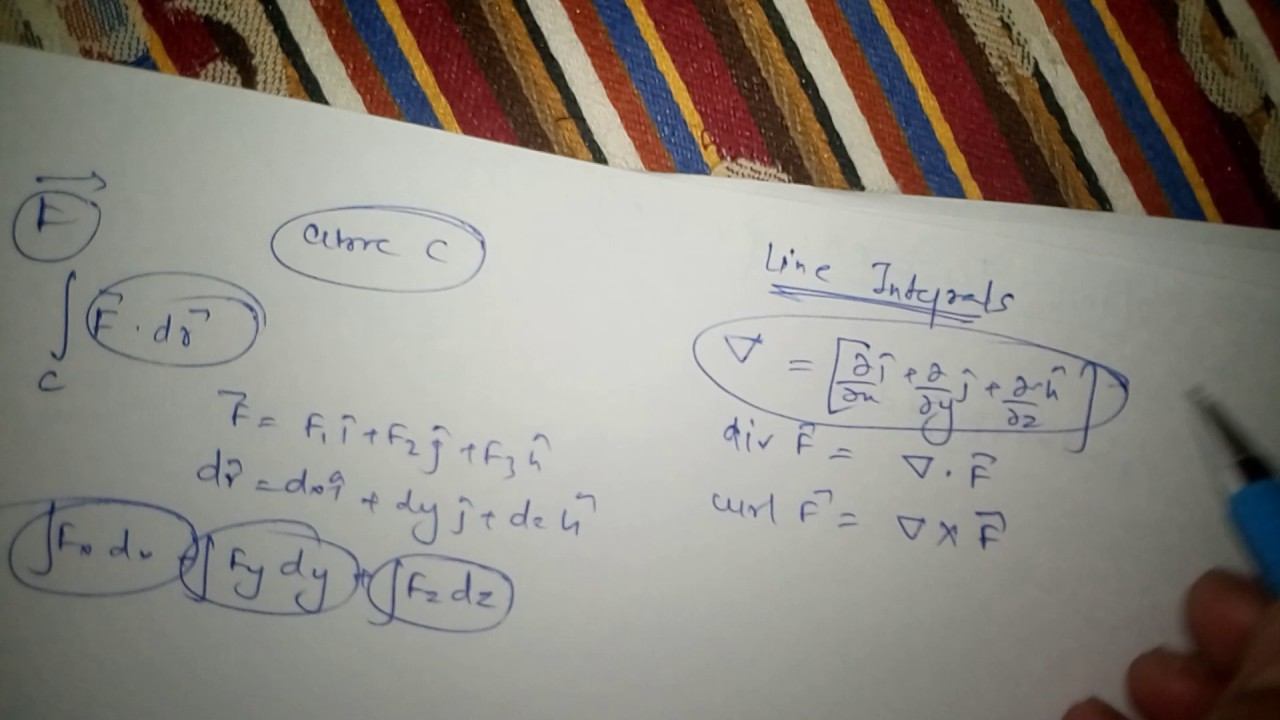 F⃗
curve C
∫_C F⃗ · dr⃗
F⃗ = F₁î + F₂ĵ + F₃k̂
dr⃗ = dxî + dyĵ + dz k̂
∫Fx dx + ∫Fy dy + ∫Fz dz
Line Integrals
∇ = [∂/∂x î + ∂/∂y ĵ + ∂/∂z k̂]
div F⃗ = ∇ · F⃗
curl F⃗ = ∇ × F⃗